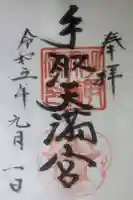 奉拝
手取天満宮
令和五年元月一日